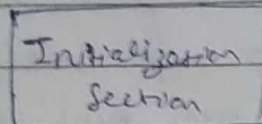 Initialization
Section